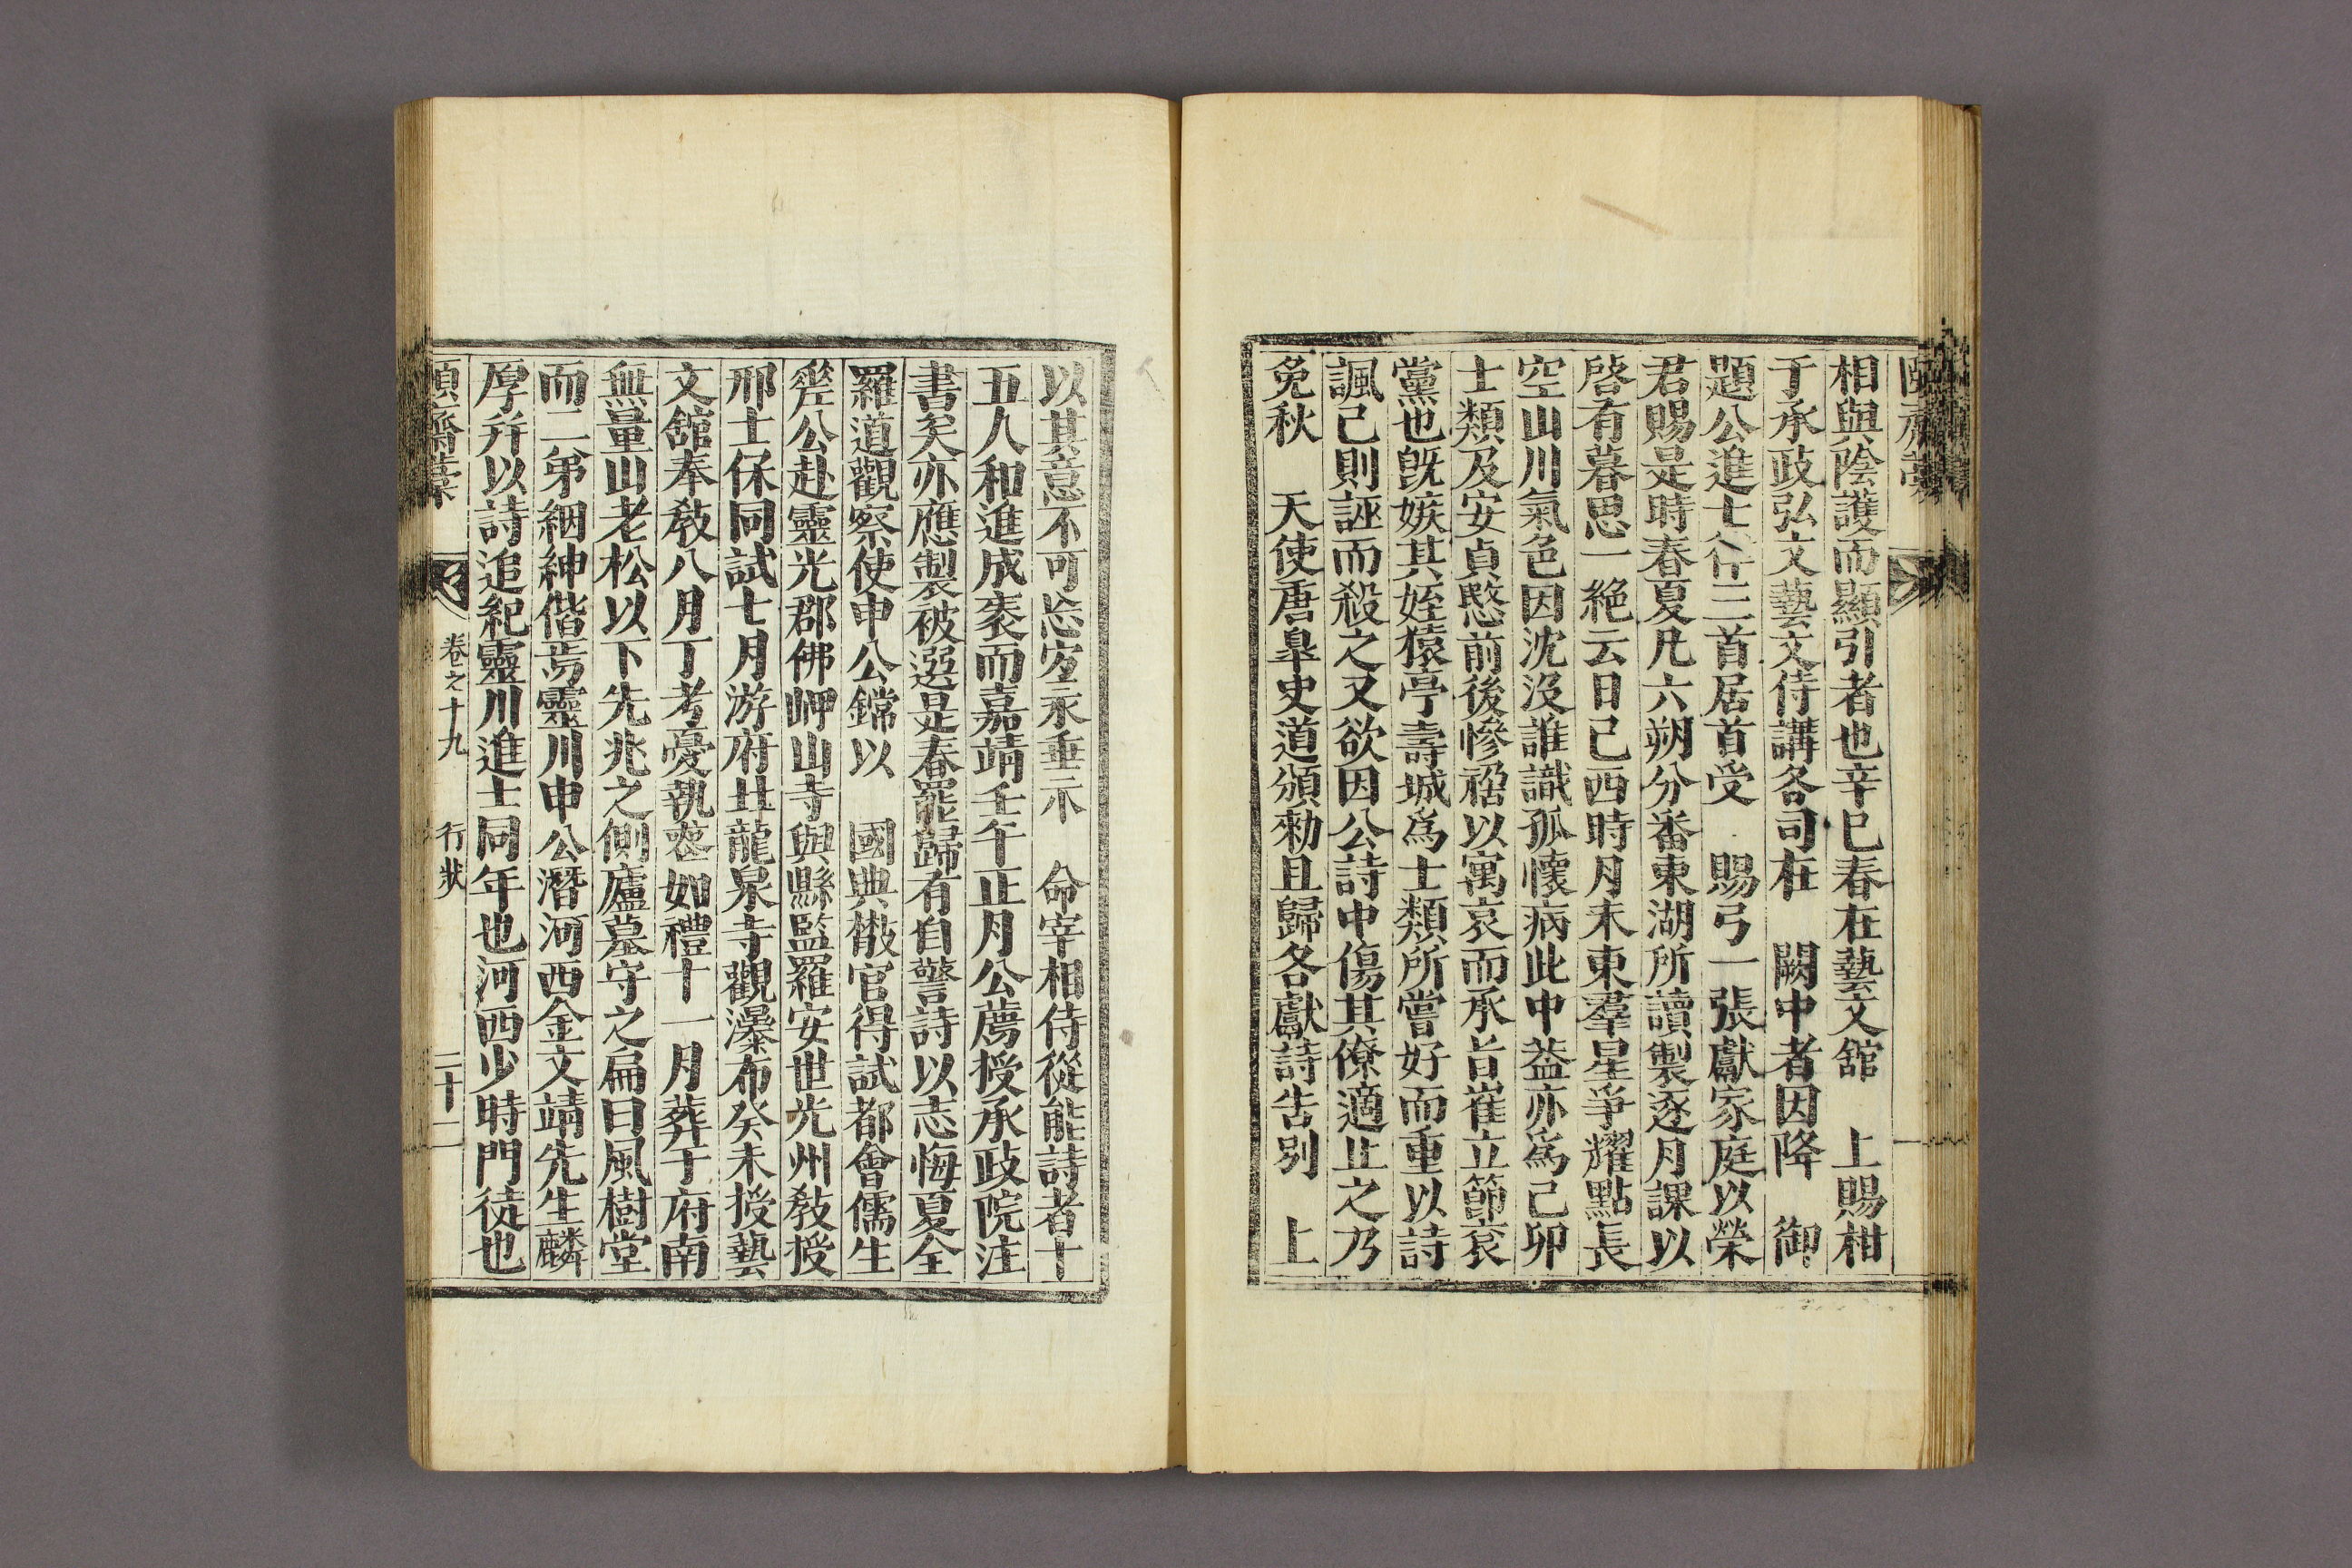 頤齋藁
相與陰護而顯引者也辛巳春在藝文舘 上賜柑
于承政弘文藝文侍講各司在 闕中者因降 御
題公進七律三首居首受 賜弓一張獻家庭以榮
君賜是時春夏凡六朔分番東湖所讀製逐月課以
啓有暮思一絶云日已西時月未東羣星爭耀點長
空山川氣色因沈沒誰識孤懷病此中葢亦爲己卯
士類及安貞愍前後慘禍以寓哀而承旨崔立節袞
黨也旣嫉其姪猿亭壽城爲士類所嘗好而重以詩
諷己則誣而殺之又欲因公詩中傷其僚適止之乃
免秋 天使唐臯史道頒勑且歸各獻詩告別 上
以其意不可忘宐永垂示 命宰相侍從能詩者十
五人和進成袠而嘉靖壬午正月公薦授承政院注
書矣亦應製被選是春罷歸有自警詩以志悔夏全
羅道觀察使申公鏛以 國典檄官得試都會儒生
縒公赴靈光郡佛岬山寺與縣監羅安世光州敎授
邢士保同試七月游府北龍泉寺觀瀑布癸未授藝
文舘奉敎八月丁考憂執喪如禮十一月葬于府南
無量山老松以下先兆之側廬墓守之扁曰風樹堂
而二弟絪紳偕焉靈川申公潛河西金文靖先生麟
厚幷以詩追紀靈川進士同年也河西少時門徒也
頤齋藁 卷之十九 行狀 二十二